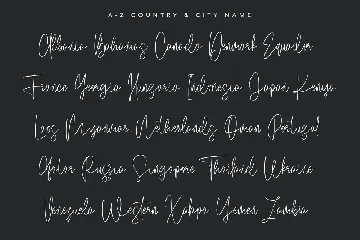 A-Z COUNTRY & CITY NAME
Albania Bahamas Canada Denmark Equador
France Georgia Hungaria Indonesia Japan Kenya
Laos Myanmar Netherlands Oman Portugal
Qatar Russia Singapore Thailand Ukraine
Venezuela Western Xabpo Yemen Zambia